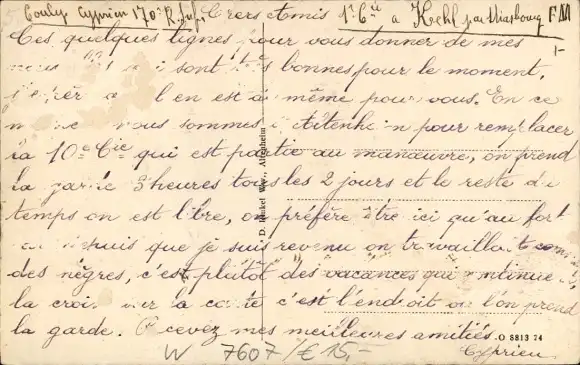 Couly Cyprien 170e R. Inf. 1e Cie a Kehl par Strasbourg FM
Chers Amis
Ces quelques lignes pour vous donner de mes
sont très bonnes pour le moment,
en est de même pour vous. En ce
nous sommes à pour remplacer
la 10e Cie qui est partie au manœuvre, on prend
la garde 3 heures tous les 2 jours et le reste du
temps on est libre, on préfère être ici qu'au fort
depuis que je suis revenu on travaillait comme
des nègres, c'est plutôt des vacances qui continue.
la croix sur la carte c'est l'endroit ou l'on prend
la garde. Recevez mes meilleures amitiés.
Cyprien
D. Henkel Wwe., Altenheim
O 8813 74
W 7607/€ 15,-